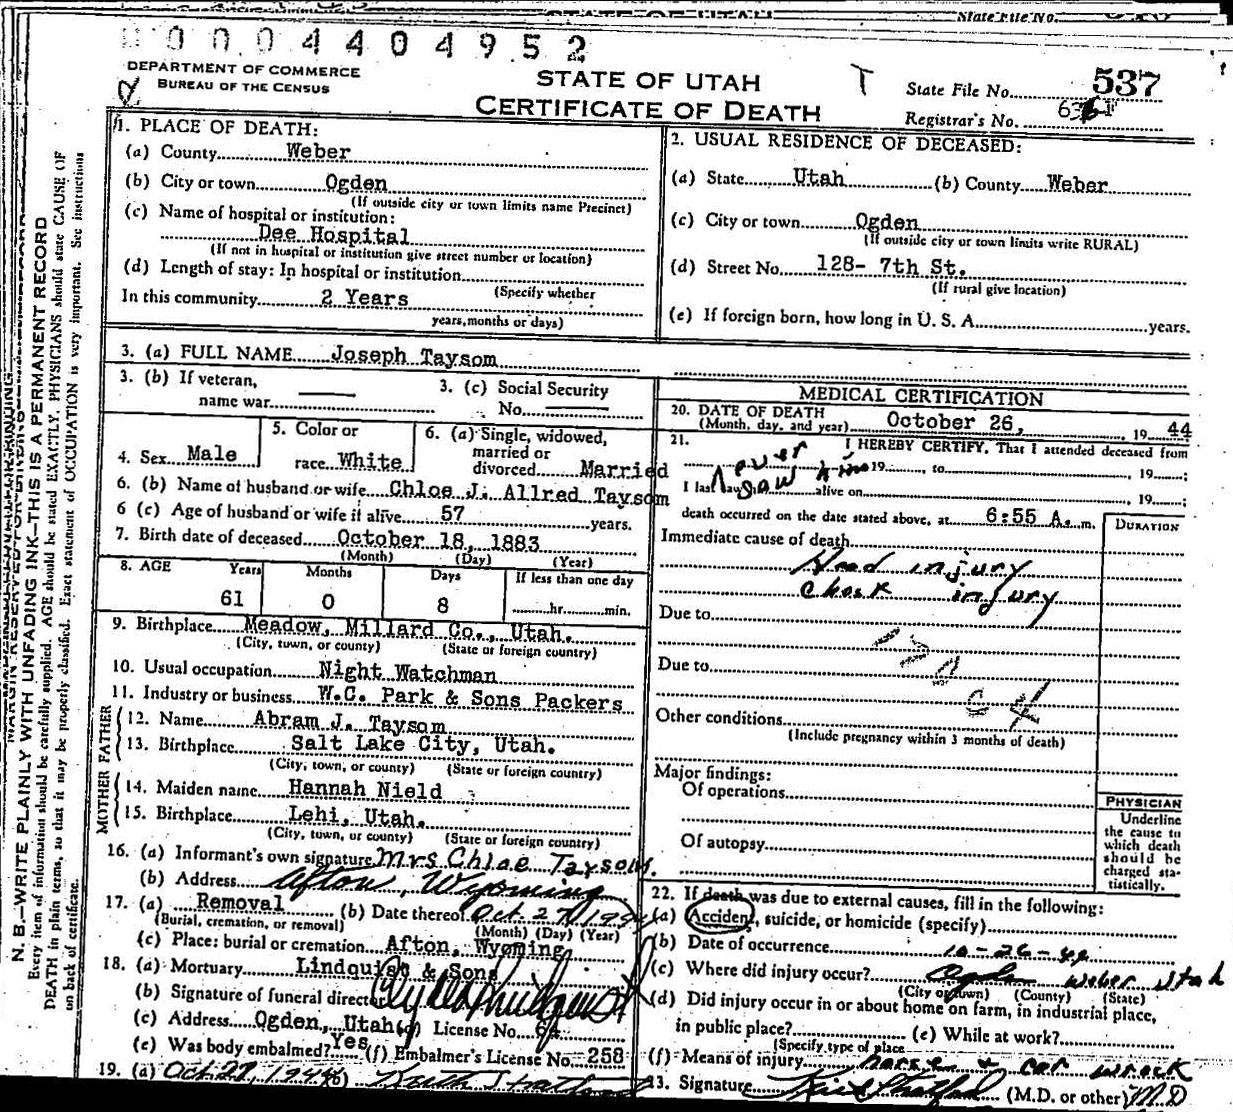 00004404952
DEPARTMENT OF COMMERCE
BUREAU OF THE CENSUS
STATE OF UTAH
CERTIFICATE OF DEATH
T
State File No. 537
Registrar's No.
N. B.—WRITE PLAINLY WITH UNFADING INK—THIS IS A PERMANENT RECORD
Every item of information should be carefully supplied. AGE should be stated EXACTLY. PHYSICIANS should state CAUSE OF
DEATH in plain terms, so that it may be properly classified. Exact statement of OCCUPATION is very important. See instructions
on back of certificate.
1. PLACE OF DEATH:
(a) County Weber
(b) City or town Ogden
(If outside city or town limits name Precinct)
(c) Name of hospital or institution:
Dee Hospital
(If not in hospital or institution give street number or location)
(d) Length of stay: In hospital or institution
(Specify whether
In this community 2 Years
years, months or days)
2. USUAL RESIDENCE OF DECEASED:
(a) State Utah (b) County Weber
(c) City or town Ogden
(If outside city or town limits write RURAL)
(d) Street No. 128- 7th St.
(If rural give location)
(e) If foreign born, how long in U. S. A. years.
3. (a) FULL NAME Joseph Taysom
3. (b) If veteran,
name war
3. (c) Social Security
No.
4. Sex Male
5. Color or
race White
6. (a) Single, widowed,
married or
divorced Married
6. (b) Name of husband or wife Chloe J. Allred Taysom
6 (c) Age of husband or wife if alive 57 years.
7. Birth date of deceased October 18, 1883
(Month) (Day) (Year)
8. AGE Years Months Days If less than one day
61 0 8 hr. min.
9. Birthplace Meadow, Millard Co., Utah.
(City, town, or county) (State or foreign country)
10. Usual occupation Night Watchman
11. Industry or business W.C. Park & Sons Packers
FATHER
12. Name Abram J. Taysom
13. Birthplace Salt Lake City, Utah.
(City, town, or county) (State or foreign country)
MOTHER
14. Maiden name Hannah Nield
15. Birthplace Lehi, Utah.
(City, town, or county) (State or foreign country)
16. (a) Informant's own signature Mrs Chloe Taysom
(b) Address Afton, Wyoming
17. (a) Removal (b) Date thereof Oct. 27, 1944
(Burial, cremation, or removal) (Month) (Day) (Year)
(c) Place: burial or cremation Afton, Wyoming
18. (a) Mortuary Lindquist & Sons
(b) Signature of funeral director
(c) Address Ogden, Utah (d) License No. 64
(e) Was body embalmed? Yes (f) Embalmer's License No. 258
19. (a) Oct. 27, 1944 (b)
MEDICAL CERTIFICATION
20. DATE OF DEATH
(Month, day, and year) October 26, 19 44
21. I HEREBY CERTIFY, That I attended deceased from
19 , to , 19 ;
I last saw never saw him alive on , 19 ;
death occurred on the date stated above, at 6:55 A. m.
DURATION
Immediate cause of death
Head injury
Chest injury
Due to
Due to
Other conditions
(Include pregnancy within 3 months of death)
Major findings:
Of operations
Of autopsy
PHYSICIAN
Underline
the cause to
which death
should be
charged sta-
tistically.
22. If death was due to external causes, fill in the following:
(a) Accident, suicide, or homicide (specify)
(b) Date of occurrence 10-26-44
(c) Where did injury occur? Ogden Weber Utah
(City or town) (County) (State)
(d) Did injury occur in or about home on farm, in industrial place,
in public place? (e) While at work?
(Specify type of place
(f) Means of injury horse & car wreck
23. Signature (M.D. or other) M D